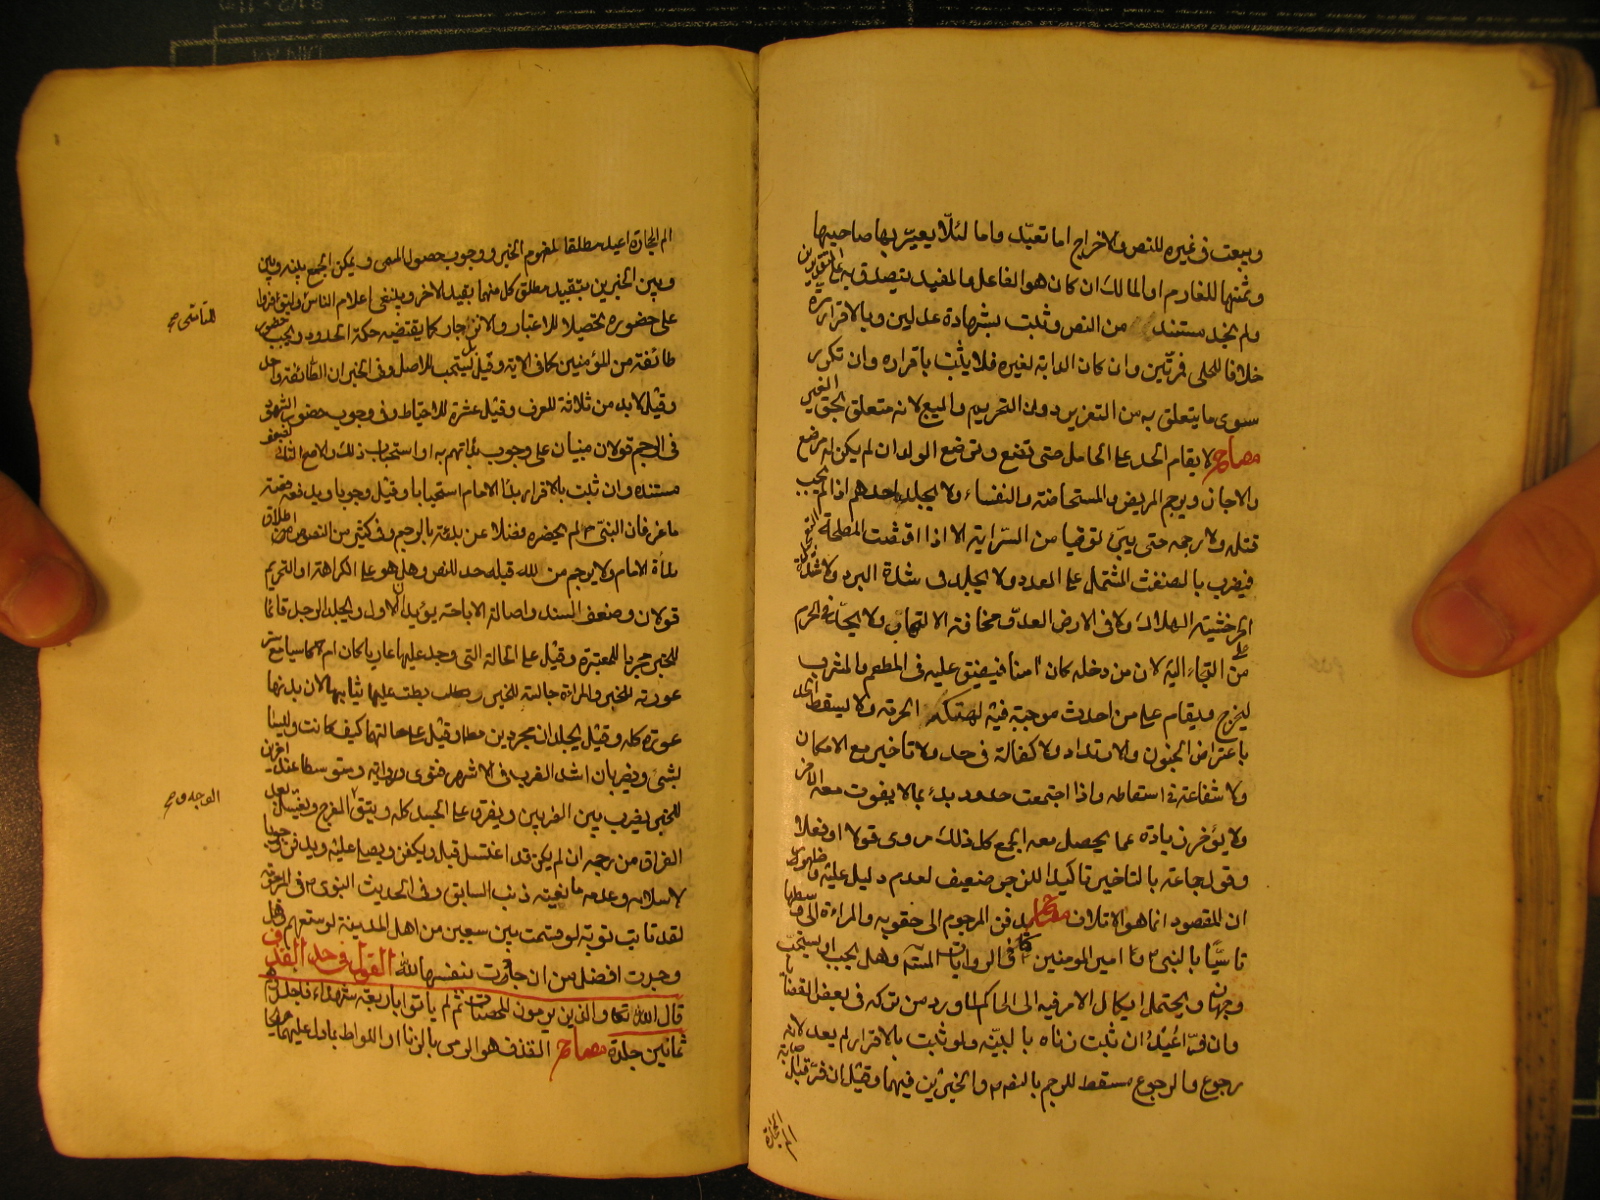 ويبعت في غيره للنص والاخراج اما تعبّد واما لئلّا يعيّر بها صاحبها
وثمنها للغارم او المالك ان كان هو الفاعل والمفيد يتصدق به على التقديرين
ولم نجد مستنده من النص وثبت بشهادة عدلين وبالاقرار مرة
خلافا للحلي فمرتين وان كان الدابة لغيره فلا يثبت باقراره وان تكرر
سوى ما يتعلق به من التعزير دون التحريم والبيع لانه متعلق بحق الغير
مصباح لا يقام الحد على الحامل حتى تضع وترضع الولد ان لم يكن له مرضع
والا جاز ويرجم المريض والمستحاضة والنفساء ولا يجلد احدهم اذا لم يجب
قتله ولا رجمه حتى يبرئ توقيا من السراية الا اذا اقتضت المصلحة
فيضرب بالضغث المشتمل على العدد ولا يجلد في شدة البرد ولا شدة
الحر خشية الهلاك ولا في الارض العدو مخافة الالتحاق ولا الجاني في الحرم
من التجاء اليه لان من دخله كان امنا فيضيق عليه في المطعم والمشرب
ليخرج ويقام على من احدث موجبه فيه لهتكه الحرمة ولا يسقط الحد
باعتراض الجنون والارتداد ولا كفالة في حد ولا تاخير مع الامكان
ولا شفاعة في اسقاطه واذا اجتمعت حدود بدئ بما لا يفوت معه الآخر
ولا يؤخر زيادة عما يحصل معه الجمع كل ذلك مروى قولا او فعلا
وقول جماعة بالتاخير تاكيدا للزجر ضعيف لعدم دليل عليه وظهور
ان المقصود انما هو الاتلاف مصباح يدفن المرجوم الى حقويه والمراءة الى وسطها
تاسيا بالنبي ص وامير المومنين ع كما في الروايات وهل يجب او يستحب
وجهان ويحتمل ايكال الامر فيه الى الحاكم لما ورد من تركه في بعض القضايا
وان فرّ اعيد ان ثبت زناه بالبينة ولو ثبت بالاقرار لم يعد لانه
رجوع والرجوع مسقط للرجم بالنص والخبرين فيهما وقيل ان فر قبل اصابة
الم الحجارة
الم الحجارة اعيد مطلقا لمفهوم الخبر ووجوب حصول المسمى ويمكن الجمع بينه وبين
وبين الخبرين بتقييد مطلق كل منهما بقيد الاخر وينبغي اعلام الناس ليتوفروا
على حضوره تحصيلا للاعتبار والانزجار كما يقتضيه حكمة الحدود ويجب حضور
طائفة من المؤمنين كما في الاية وقيل بل يستحب للاصل وفي الخبر ان الطائفة واحد
وقيل لا بد من ثلاثة للعرف وقيل عشرة للاحتياط وفي وجوب حضور الشهود
في الرجم قولان مبنيان على وجوب بدأتهم به او استحباب ذلك والاصح الثاني لضعف
مستنده وان ثبت بالاقرار بدأ الامام استحبابا وقيل وجوبا ويدفعه قصة
ماعز فان النبي ص لم يحضره فضلا عن بدئه بالرجم وفي كثير من النصوص اطلاق
بدأة الامام ولا يرجم من لله قبله حد للنص وهل هو على الكراهة او التحريم
قولان وضعف السند واصالة الاباحة يؤيدان الاول ويجلد الرجل قائما
للخبر مجردا للمعتبرة وقيل على الحالة التي وجد عليها عاريا كان ام كاسيا مع ستر
عورته للخبر والمراة جالسة للخبر ربطت عليها ثيابها لان بدنها
عورة كله وقيل يجلدان مجردين مطلقا وقيل على حالتهما كيف كانت وليسا
بشيء ويضربان اشد الضرب في الاشهر فتوى ورواية ومتوسطا عند اخرين
للخبر يضرب بين الضربين ويفرق على الجسد كله ويتقى الفرج ويغسل بعد
الفراق من رجمه ان لم يكن قد اغتسل قبل ويكفن ويصلى عليه ويدفن وجوبا
لاسلامه وعدم مانعية ذنب السابق وفي الحديث النبوى ص في المرجومة
لقد تابت توبة لو قسمت بين سبعين من اهل المدينة لوسعتهم وهل
وجدت افضل من ان جادت بنفسها لله القول في حد القذف
قال الله تعا والذين يرمون المحصنات ثم لم ياتوا باربعة شهداء فاجلدوهم
ثمانين جلدة مصباح القذف هو الرمى بالزنا او اللواط بما دل عليهما صريحا
للتأسى صح
الوجه و صح